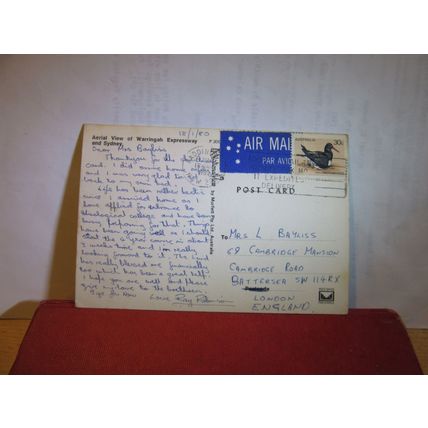 18/1/80
Aerial View of Warringah Expressway
and Sydney.
Dear Mrs Bayliss
Thankyou for the
card. I did arrive home
and I was very glad to get
back to my own bed.
Life has been rather hectic
since I arrived home as I
have applied for entrance to
theological college and have been
busy preparing for that. Things
have been going well as I should
start the 3 year course in about
2 weeks time and I'm really
looking forward to it. The Lord
has really blessed me financially
too which has been a great help
I hope you are well and please
give my love to the brethren.
Bye for Now
Love Ray
AIR MAIL
PAR AVION
AUSTRALIA
30c
DELIVERY
POST CARD
To MRS L BAYLISS
69 CAMBRIDGE MANSION
CAMBRIDGE ROAD
BATTERSEA SW 11 4RX
LONDON
ENGLAND